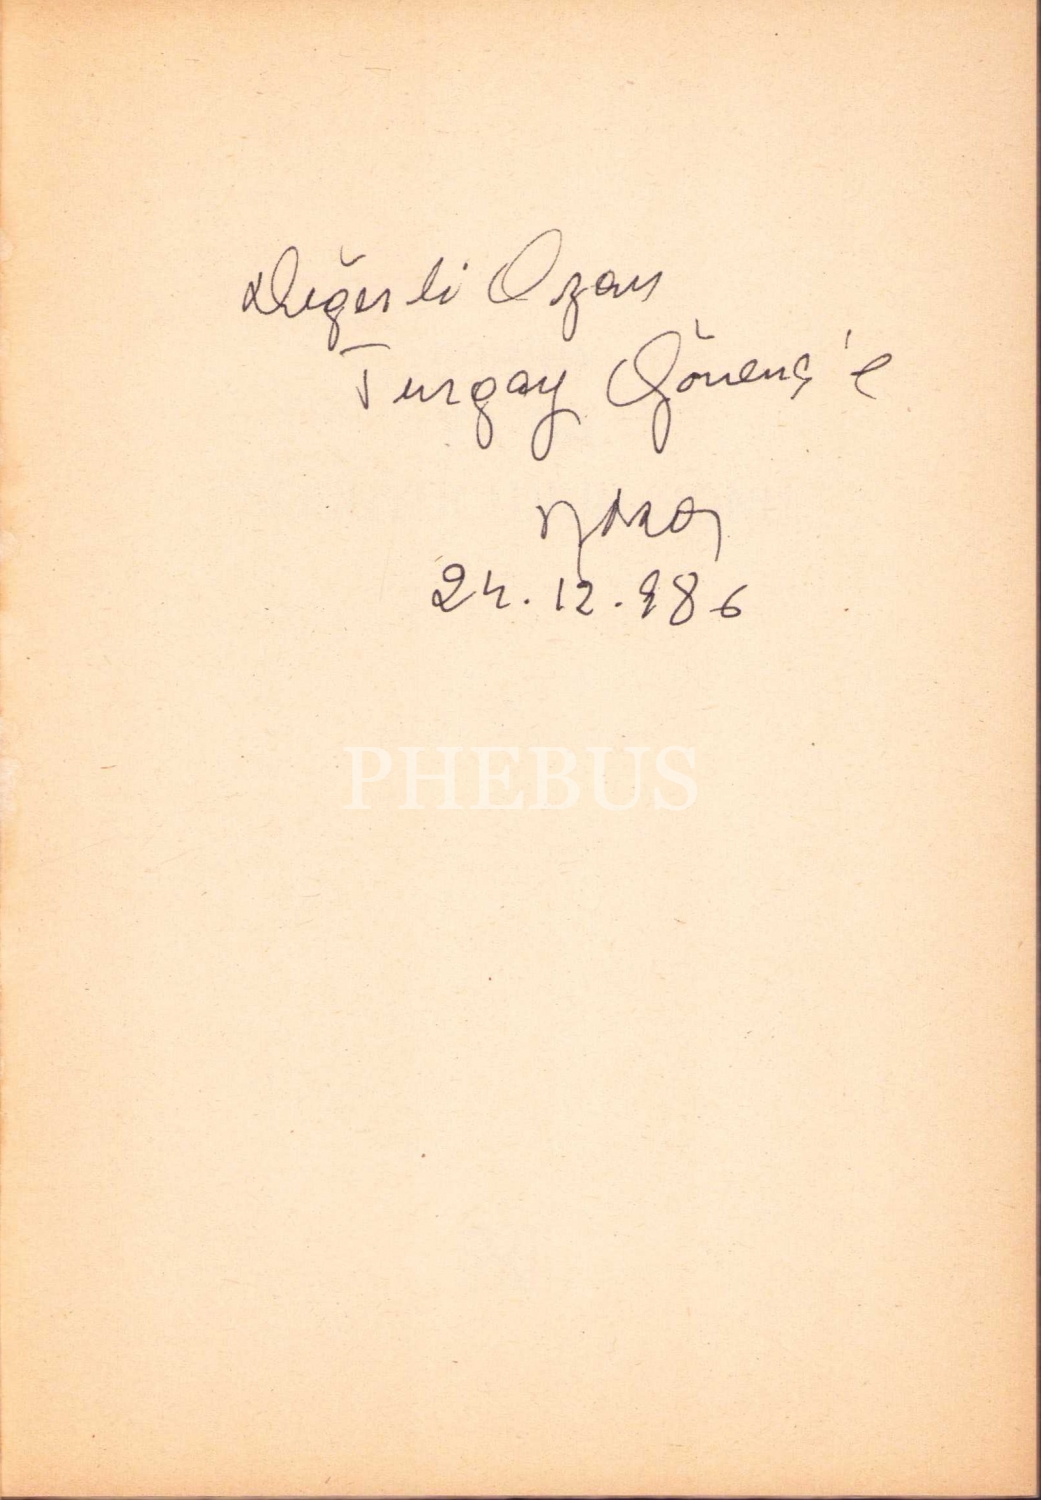 Değerli Ozan
Turgay Gönenç'e
24.12.986
PHEBUS